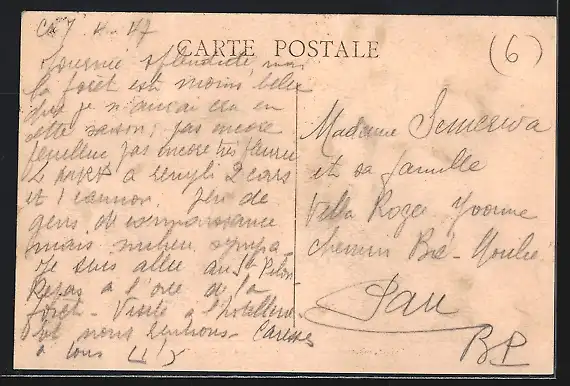 CARTE POSTALE
(6)
Journée splendide, mais
la forêt est moins belle
que je n'aurai cru en
cette saison, pas encore
feuillue, pas encore très fleurie
a rempli 2 cars
et 1 camion. Peu de
gens de connaissance
mais milieu sympa.
Je suis allée au St Pilon
Repas à l'orée de la
forêt - Visite à l'hotellerie
nous rentrons - Caresses
à tous
Madame Semeriva
et sa famille
Villa Roze Yvonne
chemin
Pau
BP